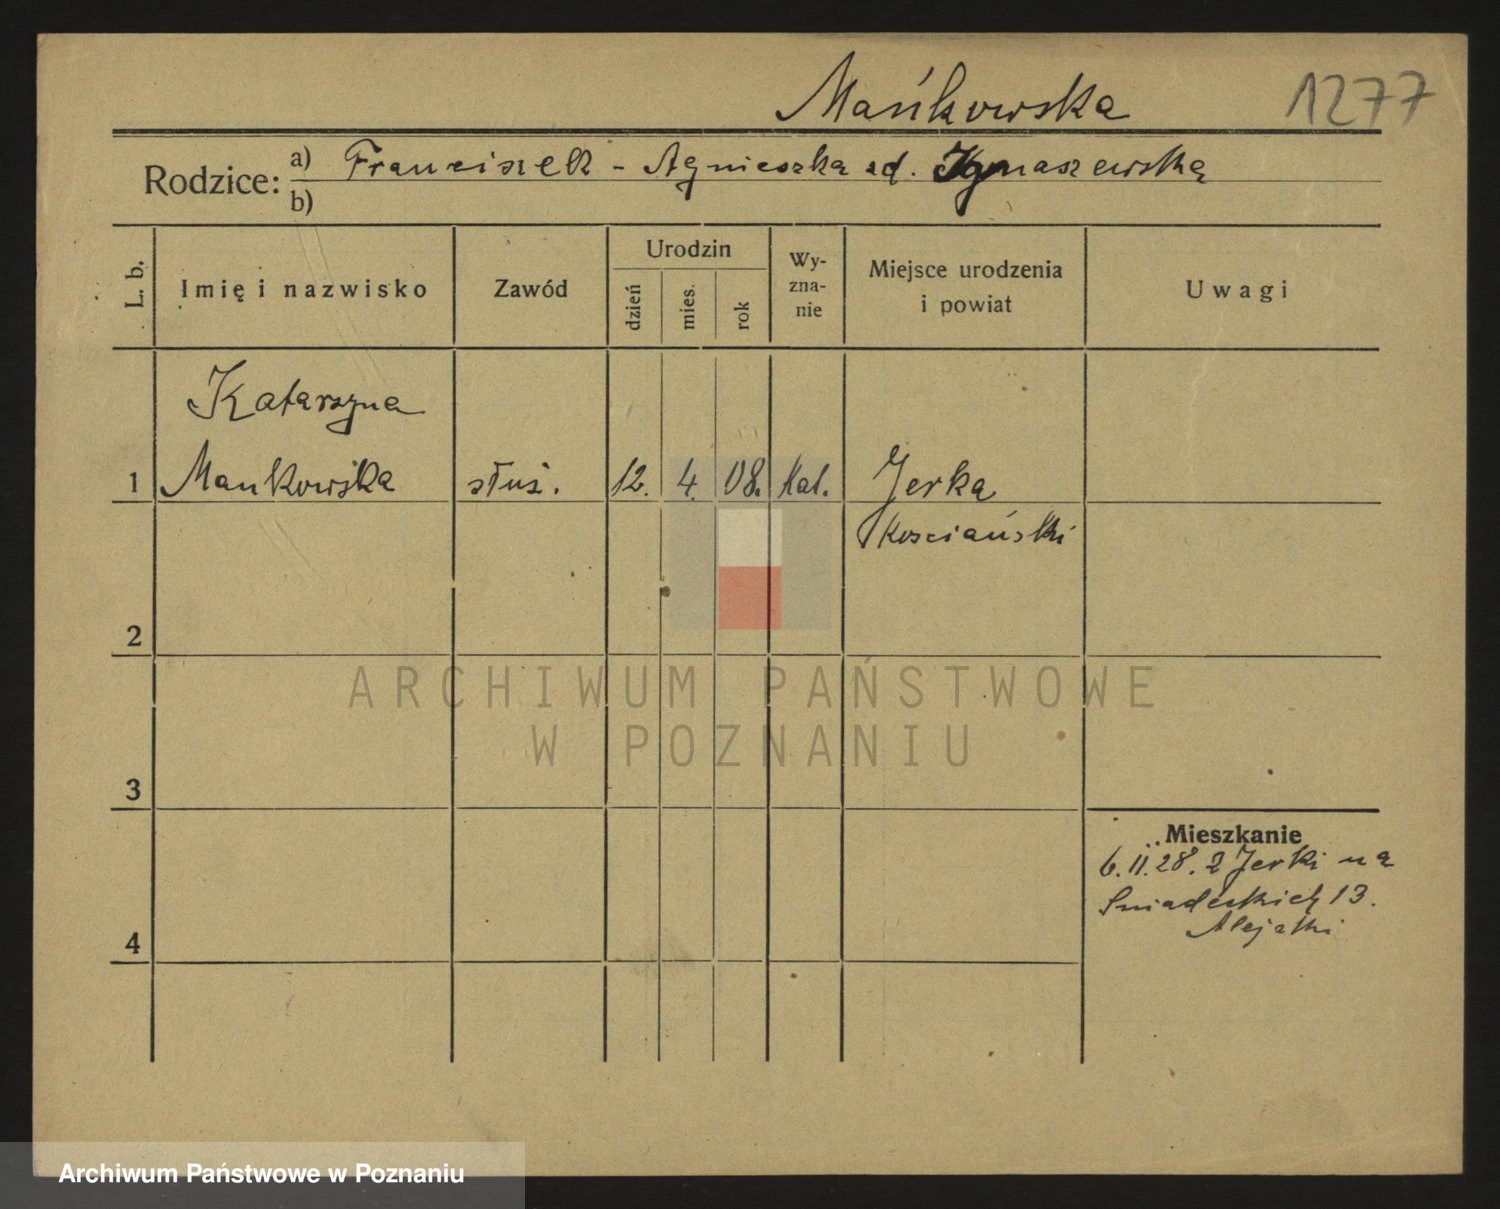 Mańkowska 1277
Rodzice: a) Franciszek - Agnieszka zd. Ignaszewska
b)
L. b. Imię i nazwisko Zawód Urodzin dzień mies. rok Wy-zna-nie Miejsce urodzenia i powiat Uwagi
Katarzyna
1 Mankowska służ. 12. 4. 08. kat. Jerka
Kościański
2
ARCHIWUM PAŃSTWOWE
W POZNANIU
3
Mieszkanie
6.11.28. z Jerki na
Sniadeckich 13.
4
Archiwum Państwowe w Poznaniu